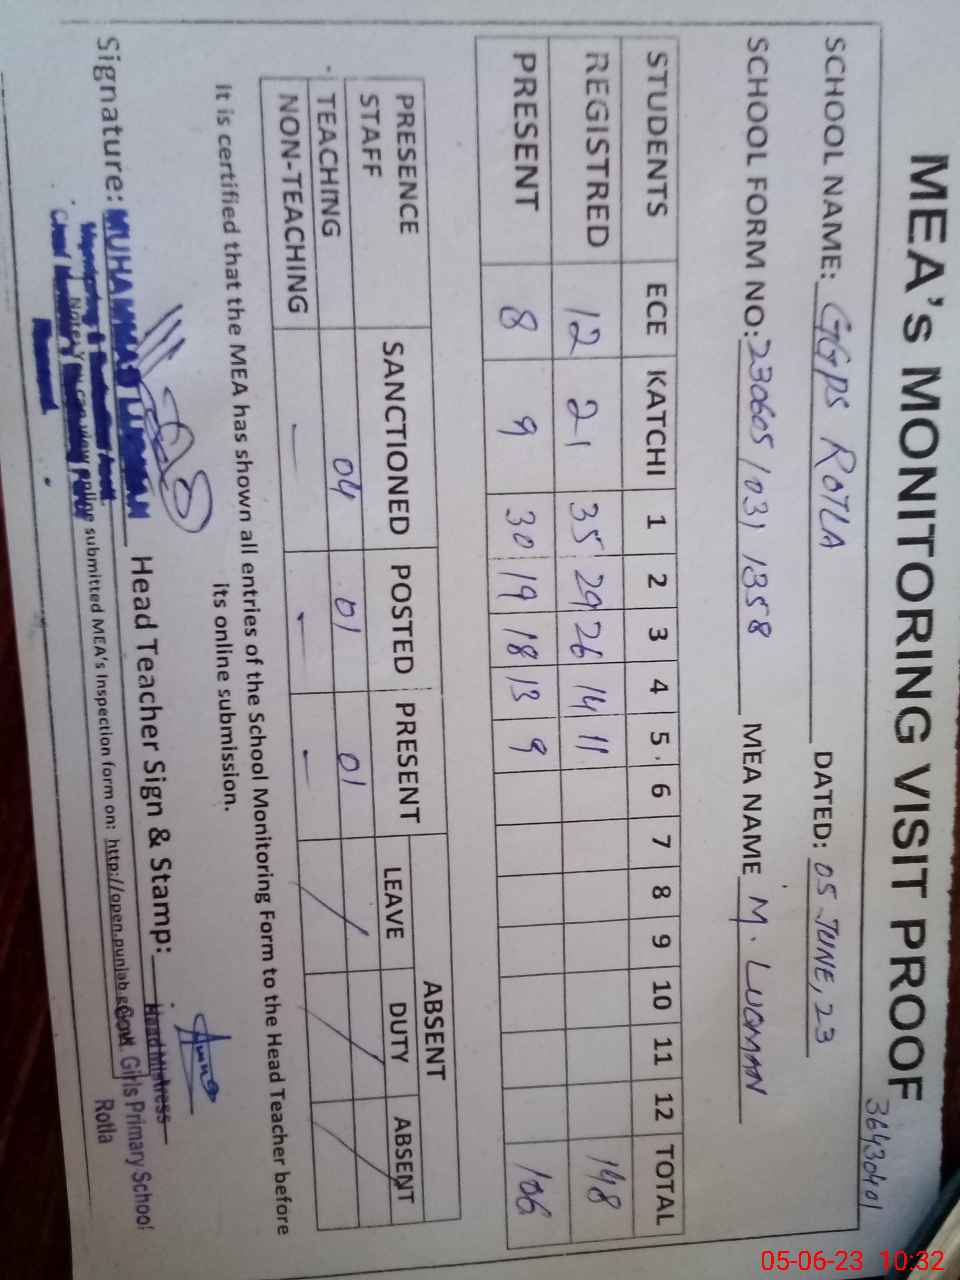 MEA's MONITORING VISIT PROOF
36430401
SCHOOL NAME: GGPS ROTLA DATED: 05 JUNE, 23
SCHOOL FORM NO: 230605/031 1358 MEA NAME M. LUQMAN
STUDENTS ECE KATCHI 1 2 3 4 5 6 7 8 9 10 11 12 TOTAL
REGISTRED 12 21 35 29 26 14 11 148
PRESENT 8 9 30 19 18 13 9 106
PRESENCE STAFF SANCTIONED POSTED PRESENT ABSENT
LEAVE DUTY ABSENT
TEACHING 04 01 01
NON-TEACHING - - -
It is certified that the MEA has shown all entries of the School Monitoring Form to the Head Teacher before
its online submission.
Signature: MUHAMMAD LUQMAN Head Teacher Sign & Stamp:
Head Mistress
Govt. Girls Primary School
Rotla
Note: You can view online submitted MEA's Inspection form on: http://open.punjab.gov
05-06-23 10:32